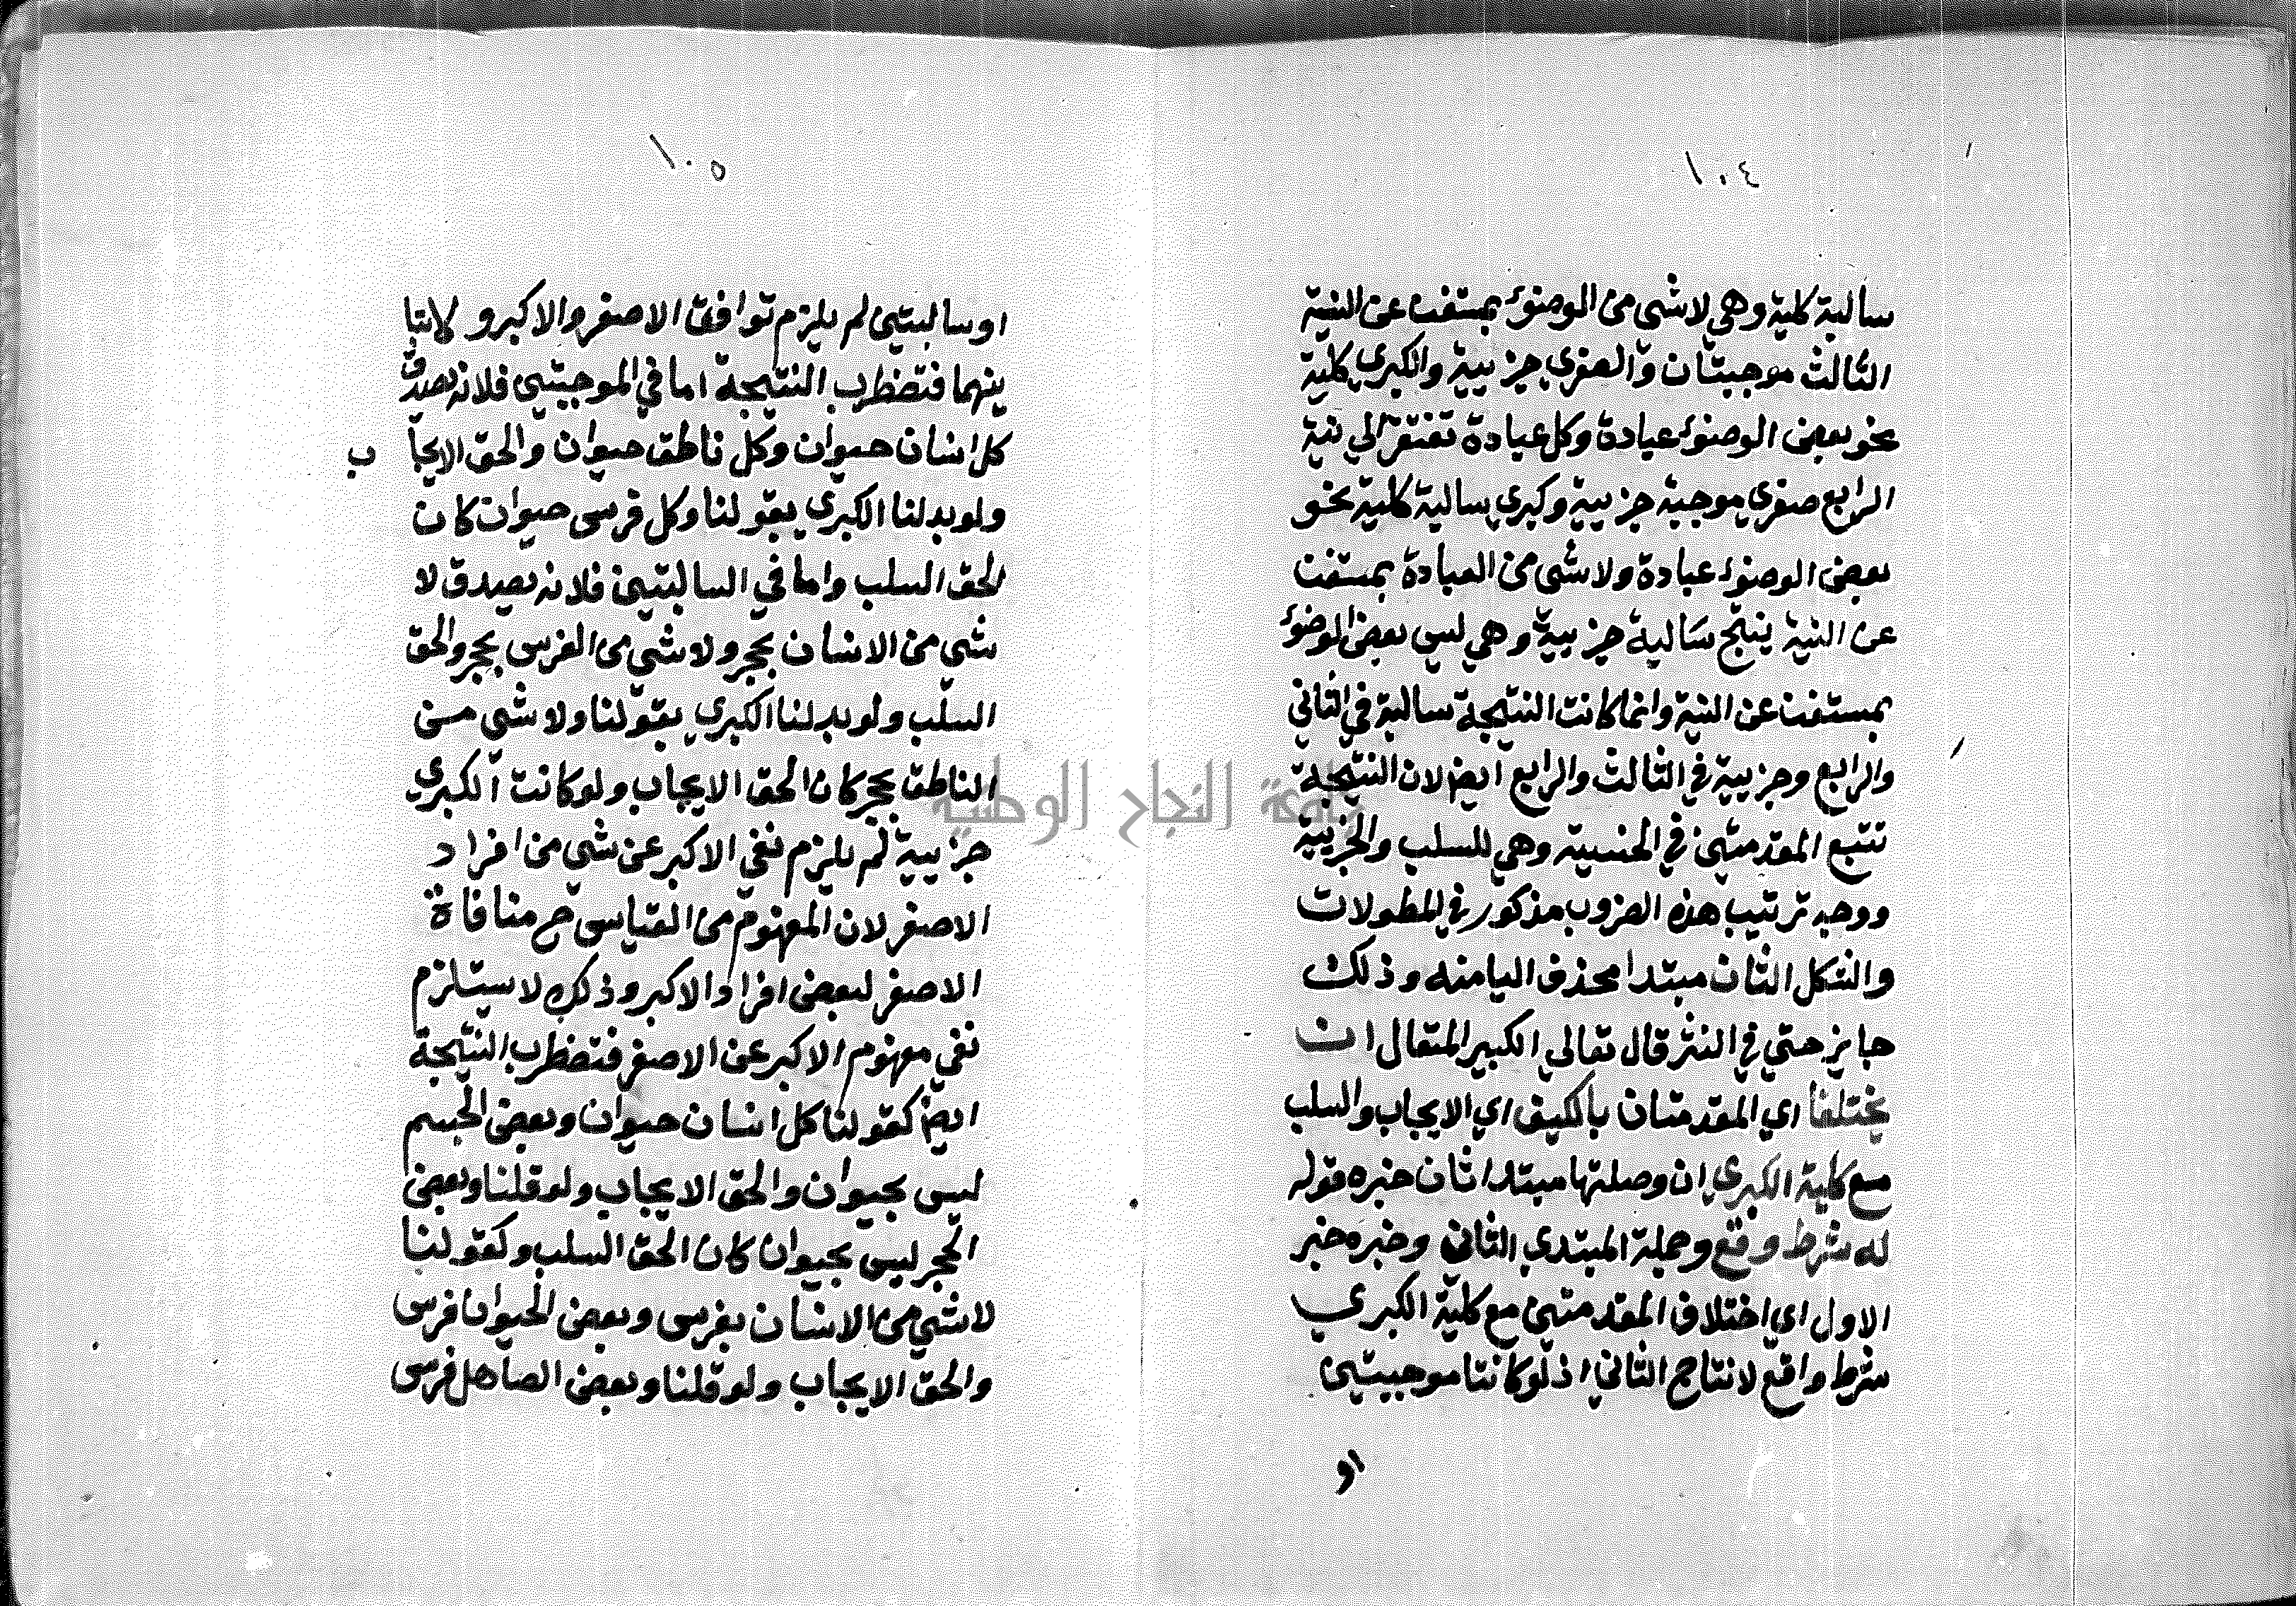 ١٠٤
سالبة كلية وهي لاشي من الوضوء بمستغن عن النية
الثالث موجبتان والصغري جزيية والكبري كلية
نحو بعض الوضوء عبادة وكل عبادة تفتقر الي نية
الرابع صغري موجبة جزيية وكبري سالبة كلية نحو
بعض الوضوء عبادة ولاشي من العبادة بمستغن
عن النية ينتج سالبة جزيية وهي ليس بعض الوضوء
بمستغن عن النية وانما كانت النتيجة سالبة في الثاني
والرابع وجزيية في الثالث والرابع ايضا لان النتيجة
تتبع المقدمتين في الخسية وهي للسلب والجزيية
ووجه ترتيب هذه الضروب مذكور في المطولات
والشكل الثان مبتدا محذف اليا منه وذلك
جايز حتي في النثر قال تعالي الكبير المتعال ان
يختلفا اي المقدمتان بالكيف اي الايجاب والسلب
مع كلية الكبري ان وصلتها مبتدا ثان خبره قوله
له شرط وقع وجملة المبتدي الثاني وخبره خبر
الاول اي اختلاف المقدمتين مع كلية الكبري
شرط واقع لانتاج الثاني اذ لو كانتا موجبتين
او
١٠٥
اوسالبتين لم يلزم توافق الاصغر والاكبر ولاتبا
ينهما فتضطرب النتيجة اما في الموجبتين فلانه يصدق
كل انسان حيوان وكل ناطق حيوان والحق الايجا ب
ولو بدلنا الكبري بقولنا وكل فرس حيوان كان
الحق السلب واما في السالبتين فلانه يصدق لا
شي من الانسان بحجر ولاشي من الفرس بحجر والحق
السلب ولو بدلنا الكبري بقولنا ولاشي من
الناطق بحجر كان الحق الايجاب ولو كانت الكبري
جزيية لم يلزم نفي الاكبر عن شي من افراد
الاصغر لان المفهوم من القياس ح منافاة
الاصغر لبعض افراد الاكبر وذلك لا يستلزم
نفي مفهوم الاكبر عن الاصغر فتضطرب النتيجة
ايضا كقولنا كل انسان حيوان وبعض الجسم
ليس بحيوان والحق الايجاب ولو قلنا وبعض
الحجر ليس بحيوان كان الحق السلب وكقولنا
لاشي من الانسان بفرس وبعض الحيوان فرس
والحق الايجاب ولو قلنا وبعض الصاهل فرس
جامعة النجاح الوطنية